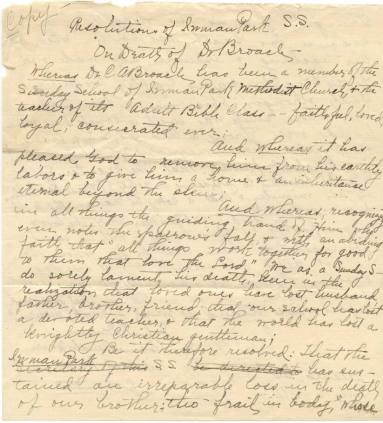 Copy
Resolutions of Inman Park S.S.
On Death of Dr Broach
Whereas Dr. C A Broach has been a member of the
Sunday School of Inman Park Methodist Church, & the
teacher of its Adult Bible Class – faithful, loved
loyal, consecrated ever:
And whereas it has
pleased God to remove him from his earthly
labors & to give him a home & an inheritance
eternal beyond the skies,
And Whereas, recognizing
in all things the guiding hand of Him who
even notes the sparrow's fall, & with an abiding
faith that "all things work together for good
to them that love the Lord" We as a Sunday S
do sorely lament his death, in the
realization that loved ones have lost husband
father brother, friend, that our school has lost
a devoted teacher, & that the world has lost a
Knightly Christian gentleman;
Be it therefore resolved: That the
Inman Park
Secretary of this S S be directed has sus-
tained an irreparable loss in the death
of our brother: tho frail in body, whose